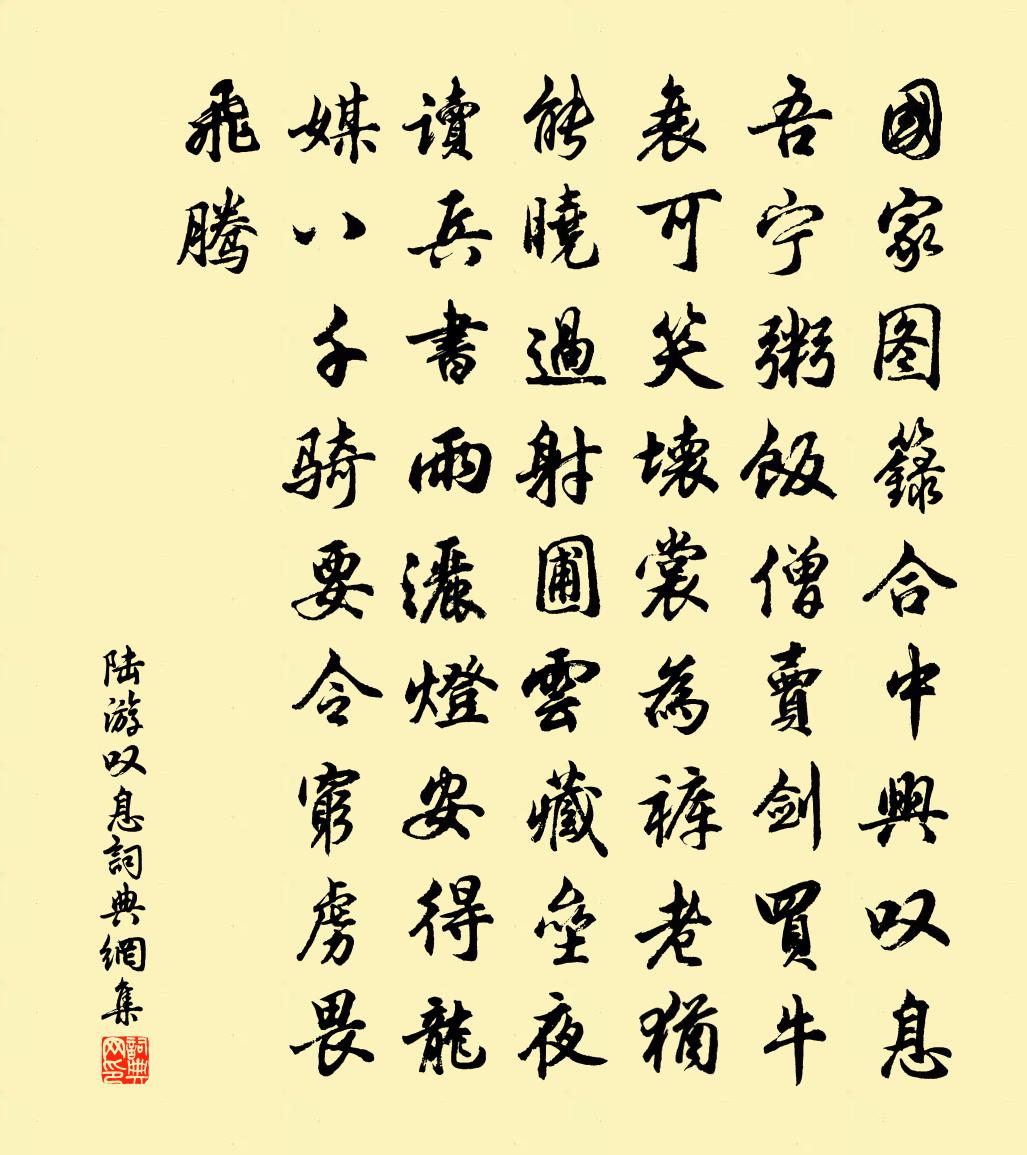 國家图籙合中興叹息
吾宁粥飯僧賣劍買牛
衰可笑壊裳為裤老猶
能曉過射圃雲藏壘夜
讀兵書雨灑燈安得龍
媒八千骑要令窮虜畏
飛腾
陆游叹息詞典網集
詞典网印